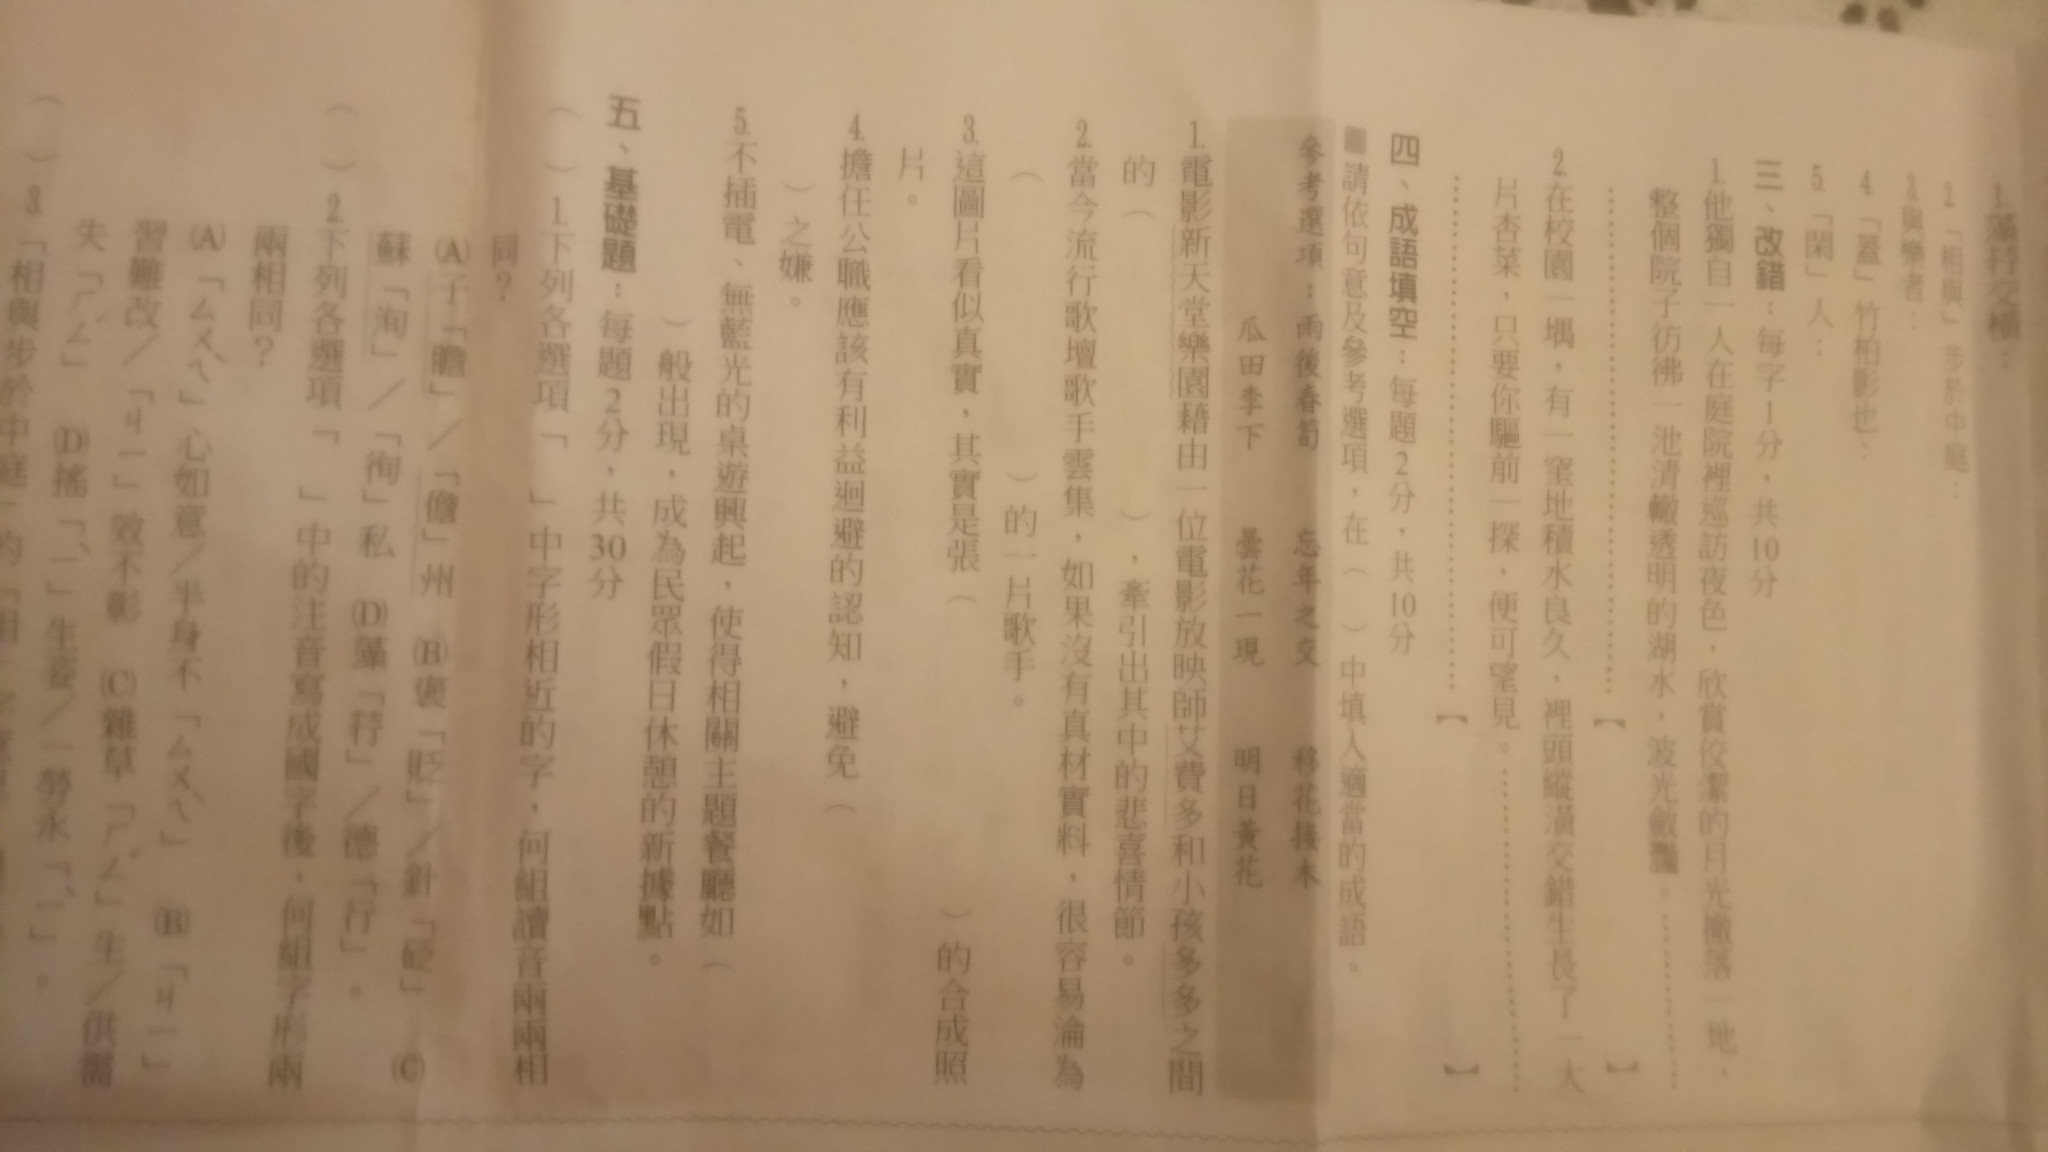 1.藻荇交橫：
2.「相與」步於中庭：
3.與樂者：
4.「蓋」竹柏影也：
5.「閑」人：
三、改錯：每字1分，共10分
1.他獨自一人在庭院裡巡訪夜色，欣賞佼潔的月光撒落一地，
整個院子彷彿一池清轍透明的湖水，波光斂灩。
【　】
2.在校園一堣，有一窪地積水良久，裡頭縱潢交錯生長了一大
片杏菜，只要你驅前一探，便可望見。
【　】
四、成語填空：每題2分，共10分
■請依句意及參考選項，在（　）中填入適當的成語。
參考選項：雨後春筍　忘年之交　移花接木
瓜田李下　曇花一現　明日黃花
1.電影新天堂樂園藉由一位電影放映師艾費多和小孩多多之間
的（　），牽引出其中的悲喜情節。
2.當今流行歌壇歌手雲集，如果沒有真材實料，很容易淪為
（　）的一片歌手。
3.這圖片看似真實，其實是張（　）的合成照
片。
4.擔任公職應該有利益迴避的認知，避免（
）之嫌。
5.不插電、無藍光的桌遊興起，使得相關主題餐廳如（
）般出現，成為民眾假日休憩的新據點。
五、基礎題：每題2分，共30分
（　）1.下列各選項「　」中字形相近的字，何組讀音兩兩相
同？
(A)子「瞻」／「儋」州　(B)褒「貶」／針「砭」　(C)
蘇「洵」／「徇」私　(D)藻「荇」／德「行」。
（　）2.下列各選項「　」中的注音寫成國字後，何組字形兩
兩相同？
(A)「ㄙㄨㄟˊ」心如意／半身不「ㄙㄨㄟˊ」　(B)「ㄐㄧ」
習難改／「ㄐㄧ」效不彰　(C)雜草「ㄏㄥˊ」生／供需
失「ㄏㄥˊ」　(D)搖「ㄧˋ」生姿／一勞永「ㄧˋ」。
（　）3.「相與步於中庭」的「相